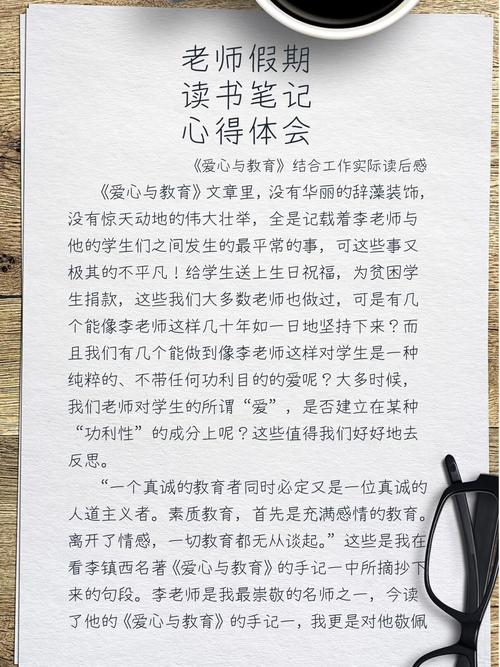 老师假期
读书笔记
心得体会
《爱心与教育》结合工作实际读后感
《爱心与教育》文章里，没有华丽的辞藻装饰，
没有惊天动地的伟大壮举，全是记载着李老师与
他的学生们之间发生的最平常的事，可这些事又
极其的不平凡！给学生送上生日祝福，为贫困学
生捐款，这些我们大多数老师也都做过，可是有几
个能像李老师这样几十年如一日地坚持下来？而
且我们有几个能做到像李老师这样对学生是一种
纯粹的、不带任何功利目的的爱呢？大多时候，
我们老师对学生的所谓“爱”，是否建立在某种
“功利性”的成分上呢？这些值得我们好好地去
反思。
“一个真诚的教育者同时必定又是一位真诚的
人道主义者。素质教育，首先是充满感情的教育。
离开了情感，一切教育都无从谈起。”这些是我在
看李镇西名著《爱心与教育》的手记一中所摘抄下
来的句段。李老师是我最崇敬的名师之一，今读
了他的《爱心与教育》的手记一，我更是对他敬佩